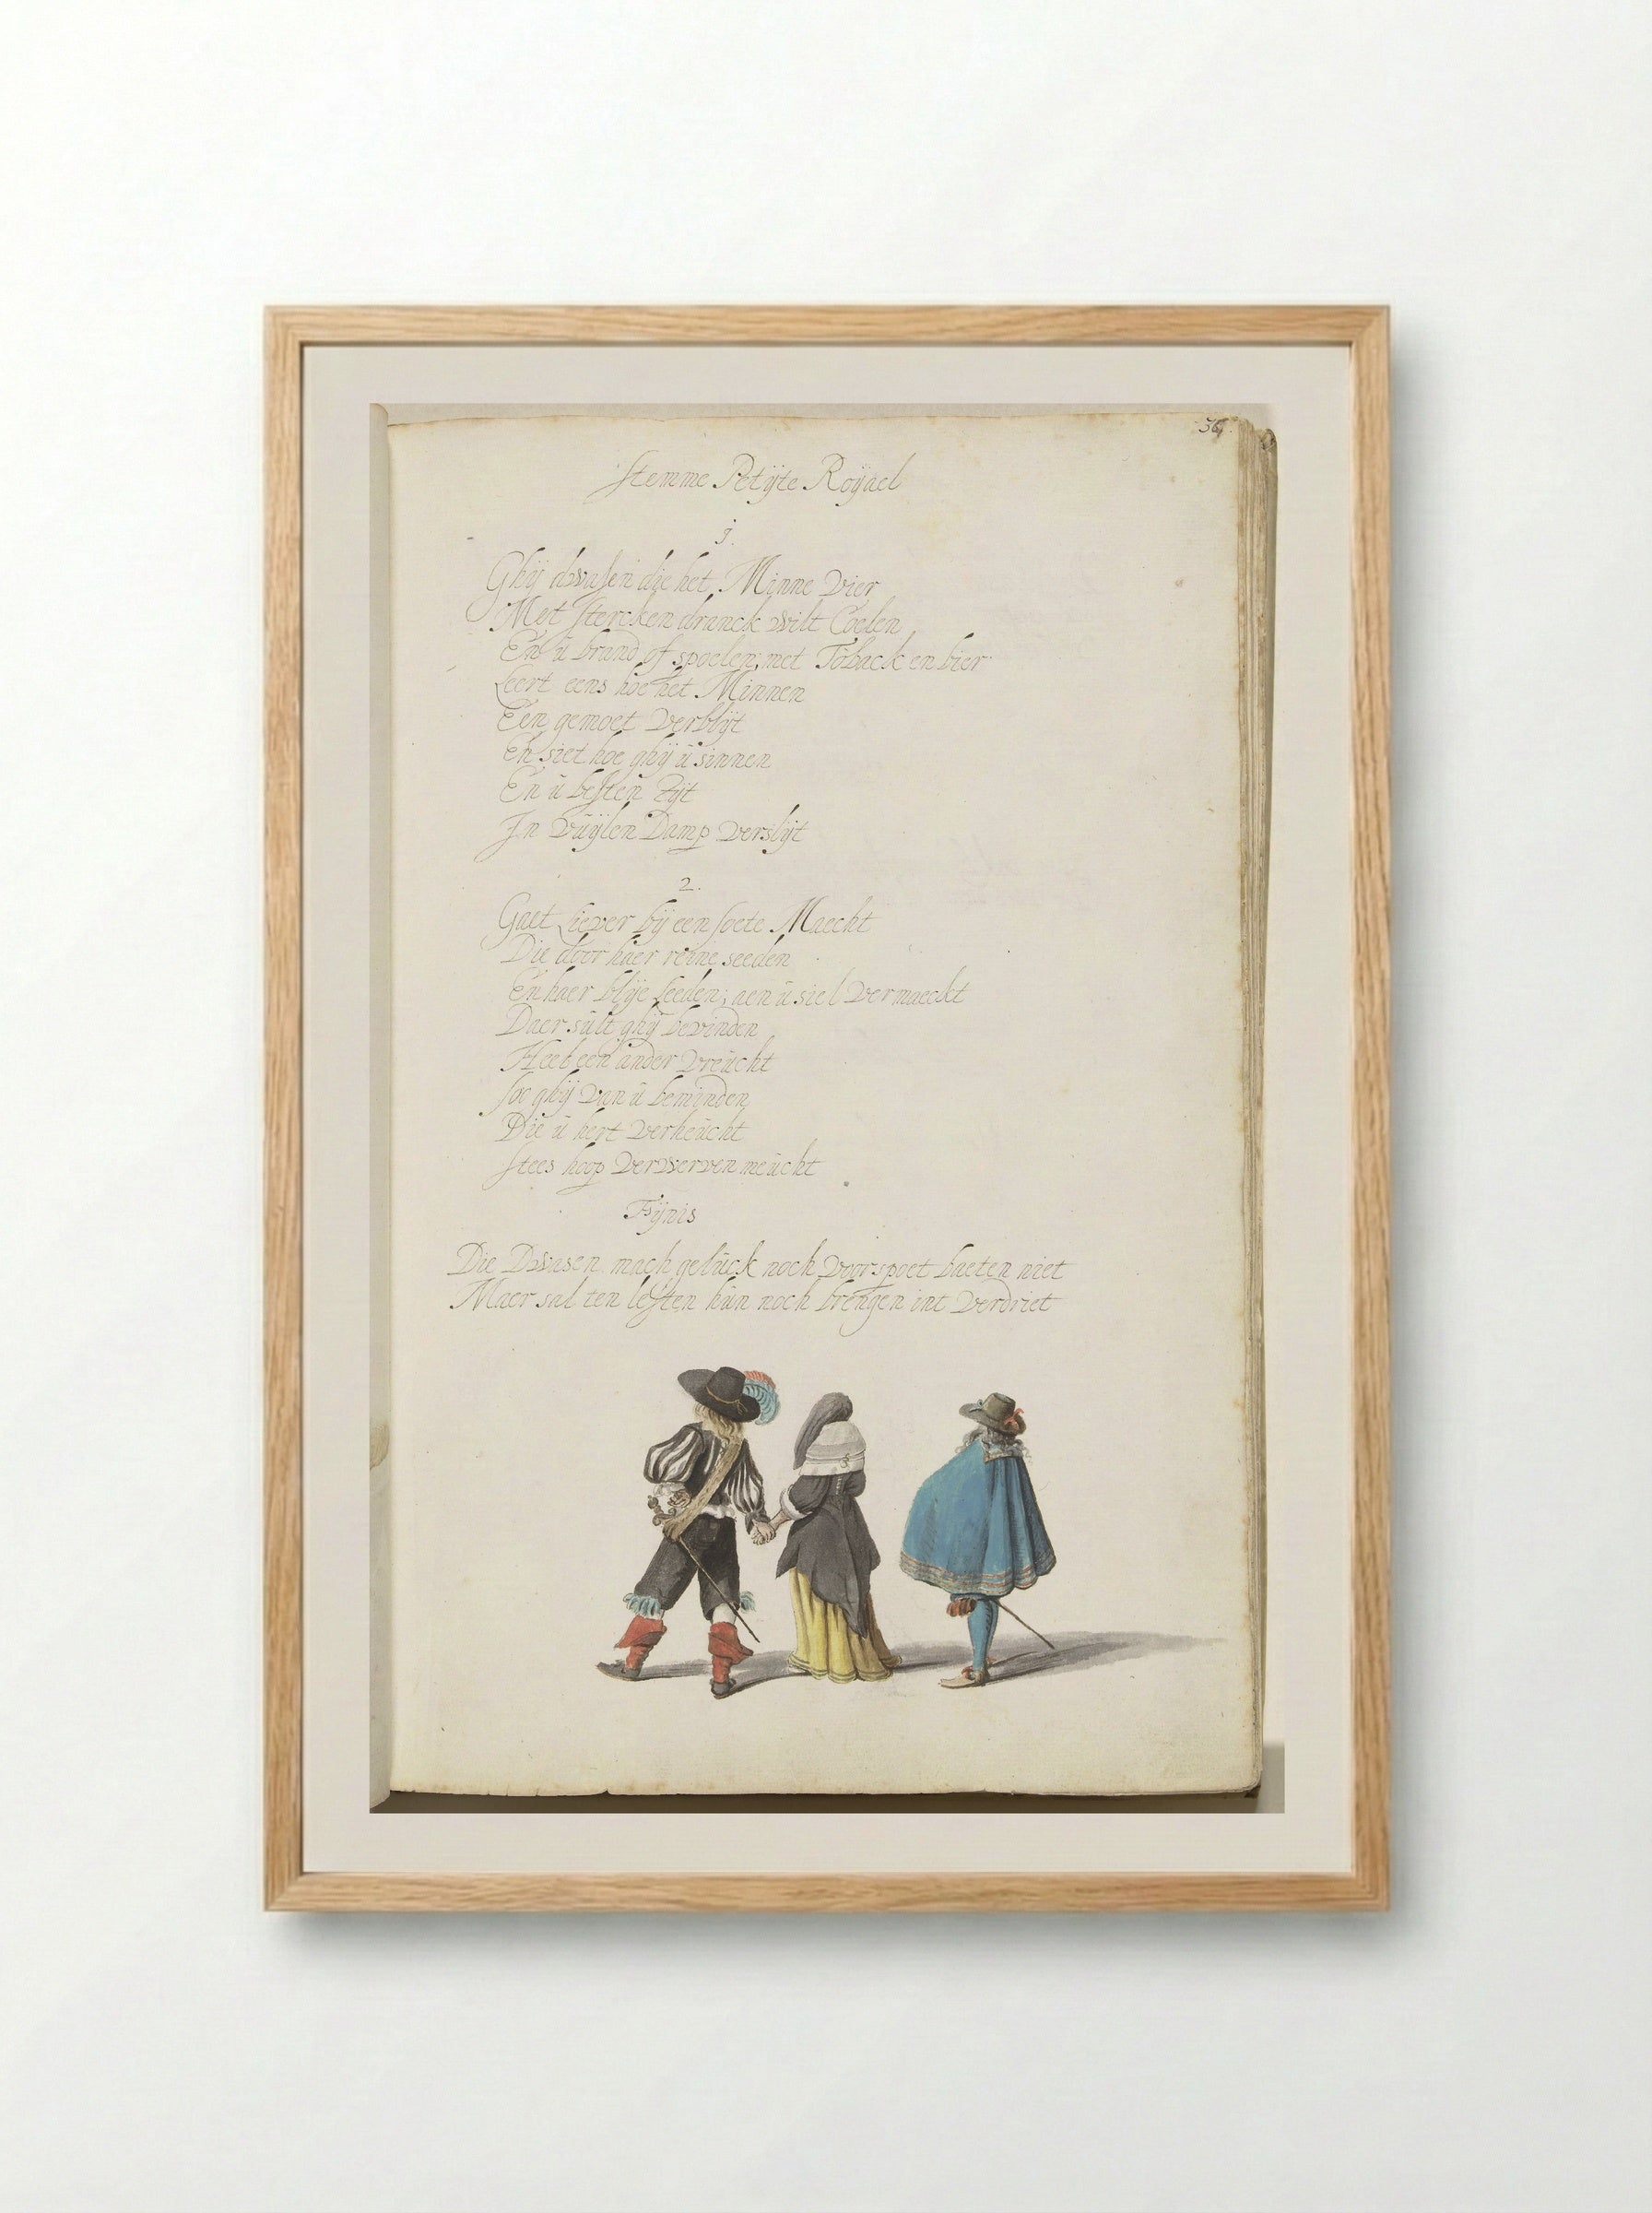 36
Stemme Petÿte Roÿael
1.
Ghÿ dwasen die het Minne Vier
Met stercken dranck wilt Coelen
En ŭ brand of spoelen; met Toback en bier
Leert eens hoe het Minnen
Een gemoet Verblÿt
En siet hoe ghÿ ŭ sinnen
En ŭ besten Zÿt
In Vŭÿlen Damp Verslÿt
2.
Gaet Liever bÿ een soete Maecht
Die door haer reine seeden
En haer blÿe Leeden; aen ŭ siel Vermaeckt
Daer sŭlt ghÿ bevinden
Heel een ander Vreŭcht
soo ghÿ Van ŭ beminden
Die ŭ hert Verheŭcht
stees hoop Verwerven meŭcht
Fÿnis
Die Dwasen mach gelŭck noch Voorspoet baeten niet
Maer sal ten lesten hŭn noch brengen int Verdriet